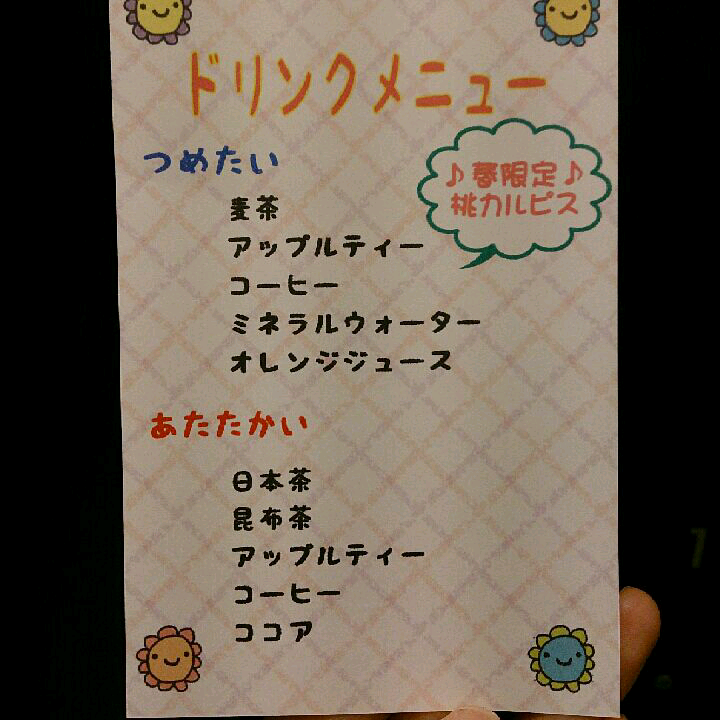 ドリンクメニュー
つめたい
♪春限定♪
桃カルピス
麦茶
アップルティー
コーヒー
ミネラルウォーター
オレンジジュース
あたたかい
日本茶
昆布茶
アップルティー
コーヒー
ココア